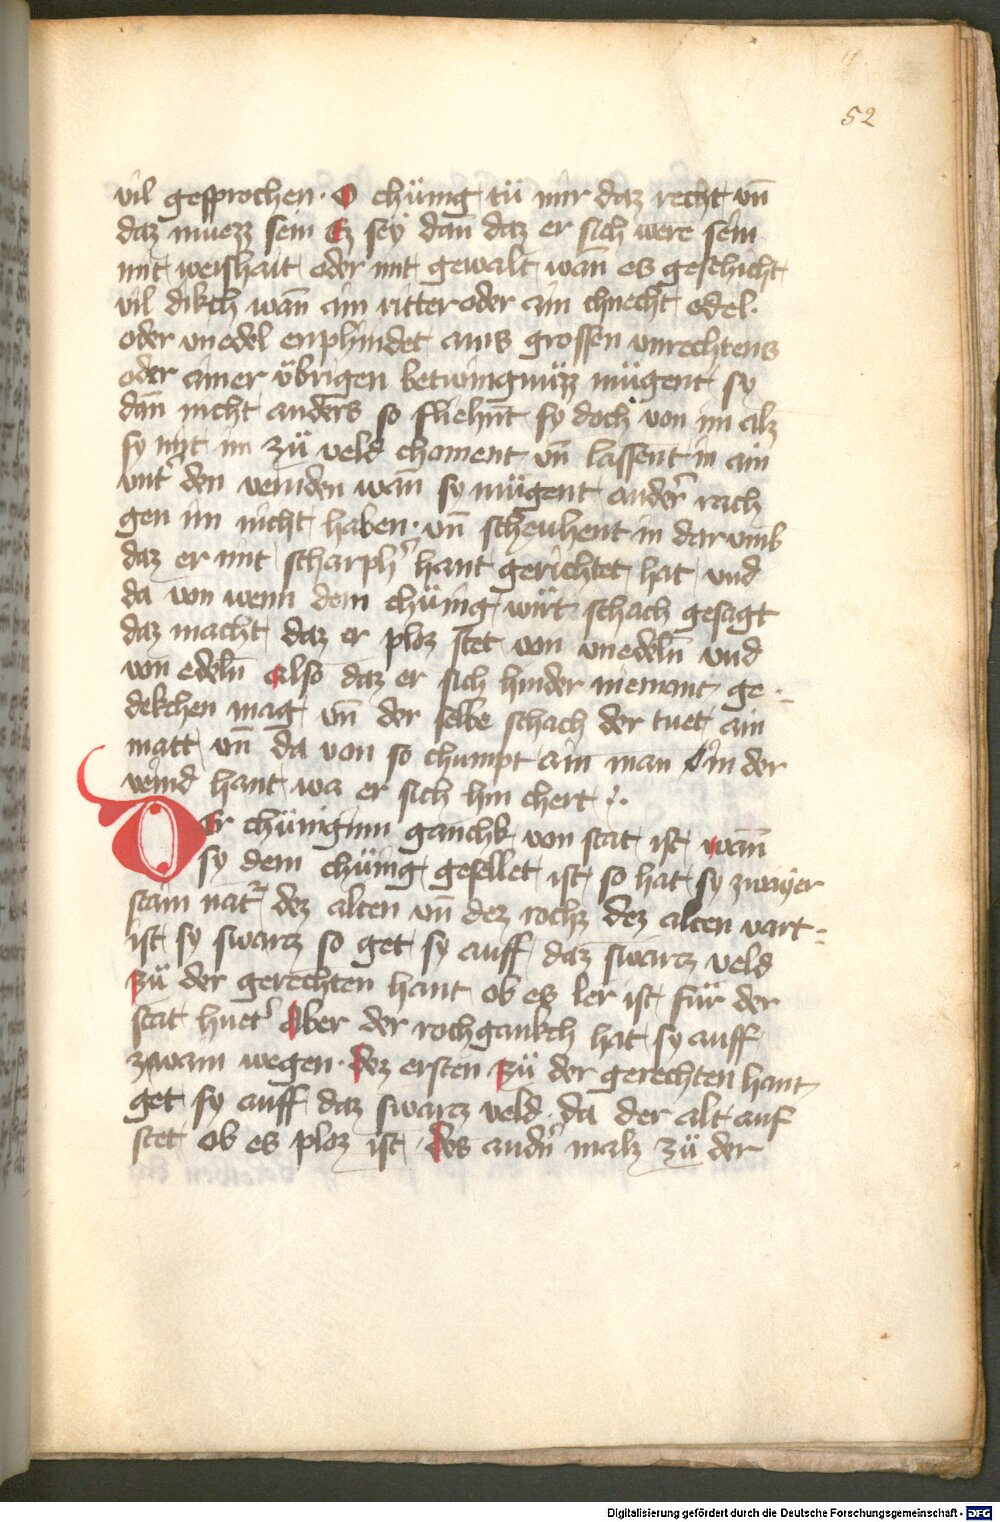 52
vil gesprochen · O chünig tü mir daz recht vn̄
daz muezz sein Ez sey dan̄ daz er sich were sein
mit weishait oder mit gewalt wan̄ es geschicht
vil dikch wan̄ ain ritter oder ain chnecht edel ·
oder vnedel enphindet ains grossen vnrechtens
oder ainer übrigen betwingnüzz mügent sy
dan̄ nicht anders so fliehn̄t sy doch von im alz
sy mit im zü veld choment vn̄ lassent in ain
vnt' den veinden wan̄ sy mügent ander' rach
gen im nicht haben · vn̄ scheuhent in dar vmb
daz er mit scharph' hant gerichtet hat vnd
da von wenn dem chünig wirt schach gesagt
daz macht daz er ploz stet von vnedeln̄ vnd
von edeln̄ also daz er sich hinder niemant ge -
dekchen mag vn̄ der selbe schach der tuet ain
matt vn̄ da von so chumpt ain man in der
veind hant wa er sich hin chert ·
Der chüniginn ganchk von stat ist wan̄
sy dem chünig gesellet ist so hat sy zwayer
stain nat' dez alten vn̄ dez rochz dez alten vart -
ist sy swarcz so get sy auff daz swarcz veld
Zü der gerechten hant ob es ler ist für der
stat huet' Aber der roch gankch hat sy auff
zwain wegen · dez ersten Zü der gerechten hant
get sy auff daz swarcz veld · da der alt auf
stet ob es ploz ist · des andn̄ malz zü der
Digitalisierung gefördert durch die Deutsche Forschungsgemeinschaft - DFG